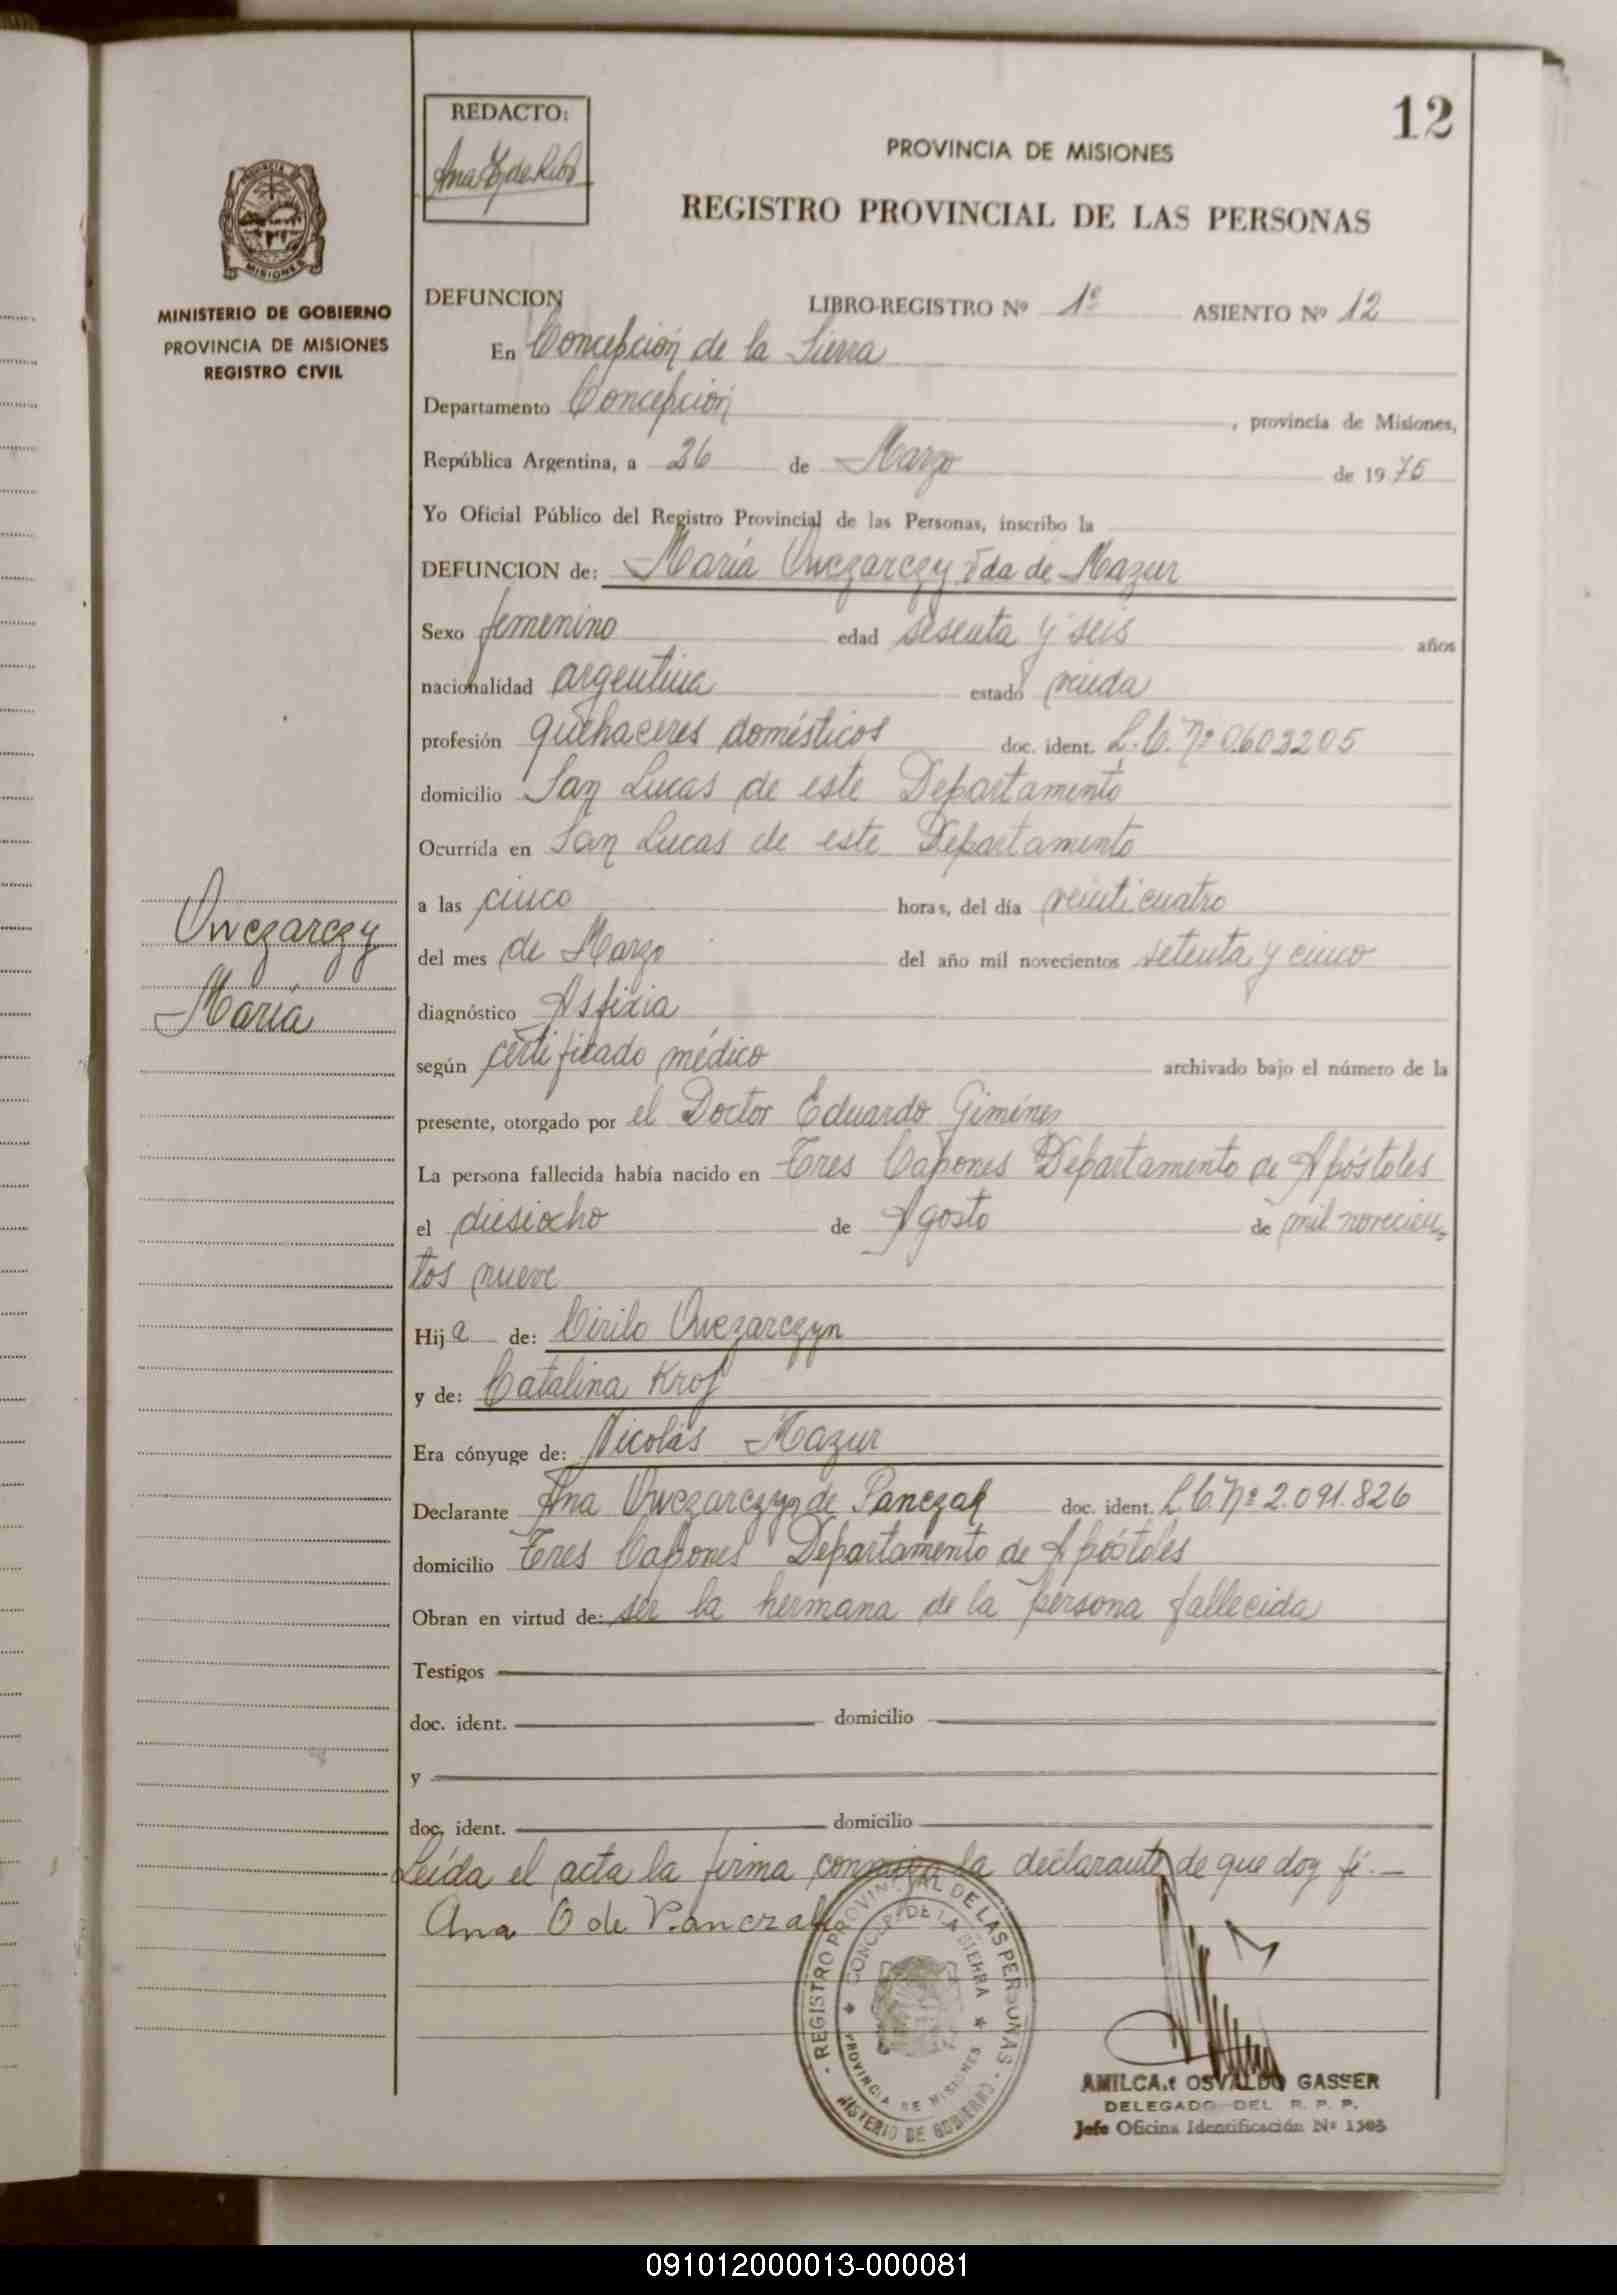 12
REDACTO:
PROVINCIA DE MISIONES
REGISTRO PROVINCIAL DE LAS PERSONAS
PROVINCIA DE
MISIONES
MINISTERIO DE GOBIERNO
PROVINCIA DE MISIONES
REGISTRO CIVIL
DEFUNCION LIBRO-REGISTRO Nº 1º ASIENTO Nº 12
En Concepción de la Sierra
Departamento Concepción, provincia de Misiones,
República Argentina, a 26 de Marzo de 1975
Yo Oficial Público del Registro Provincial de las Personas, inscribo la
DEFUNCION de: María Owczarczy Vda de Mazur
Sexo femenino edad sesenta y seis años
nacionalidad argentina estado viuda
profesión quehaceres domésticos doc. ident. L.C. Nº 0.603205
domicilio San Lucas de este Departamento
Ocurrida en San Lucas de este Departamento
a las cinco horas, del día veinticuatro
Owczarczy
María
del mes de Marzo del año mil novecientos setenta y cinco
diagnóstico Asfixia
según certificado médico archivado bajo el número de la
presente, otorgado por el Doctor Eduardo Giménez
La persona fallecida había nacido en Tres Capones Departamento de Apóstoles
el diesiocho de Agosto de mil novecien-
tos nueve
Hija de: Cirilo Owczarczyn
y de: Catalina Krof
Era cónyuge de: Nicolás Mazur
Declarante Ana Owczarczyn de Panczak doc. ident. L.C. Nº 2.091.826
domicilio Tres Capones Departamento de Apóstoles
Obran en virtud de: ser la hermana de la persona fallecida
Testigos
doc. ident. domicilio
y
doc. ident. domicilio
Leída el acta la firma conmigo la declarante de que doy fé.-
Ana O de Panczak
REGISTRO PROVINCIAL DE LAS PERSONAS
CONCEP. DE LA SIERRA
PROVINCIA DE MISIONES
MISTERIO DE GOBIERNO
AMILCAR OSVALDO GASSER
DELEGADO DEL R. P. P.
Jefe Oficina Identificación Nº 1303
091012000013-000081